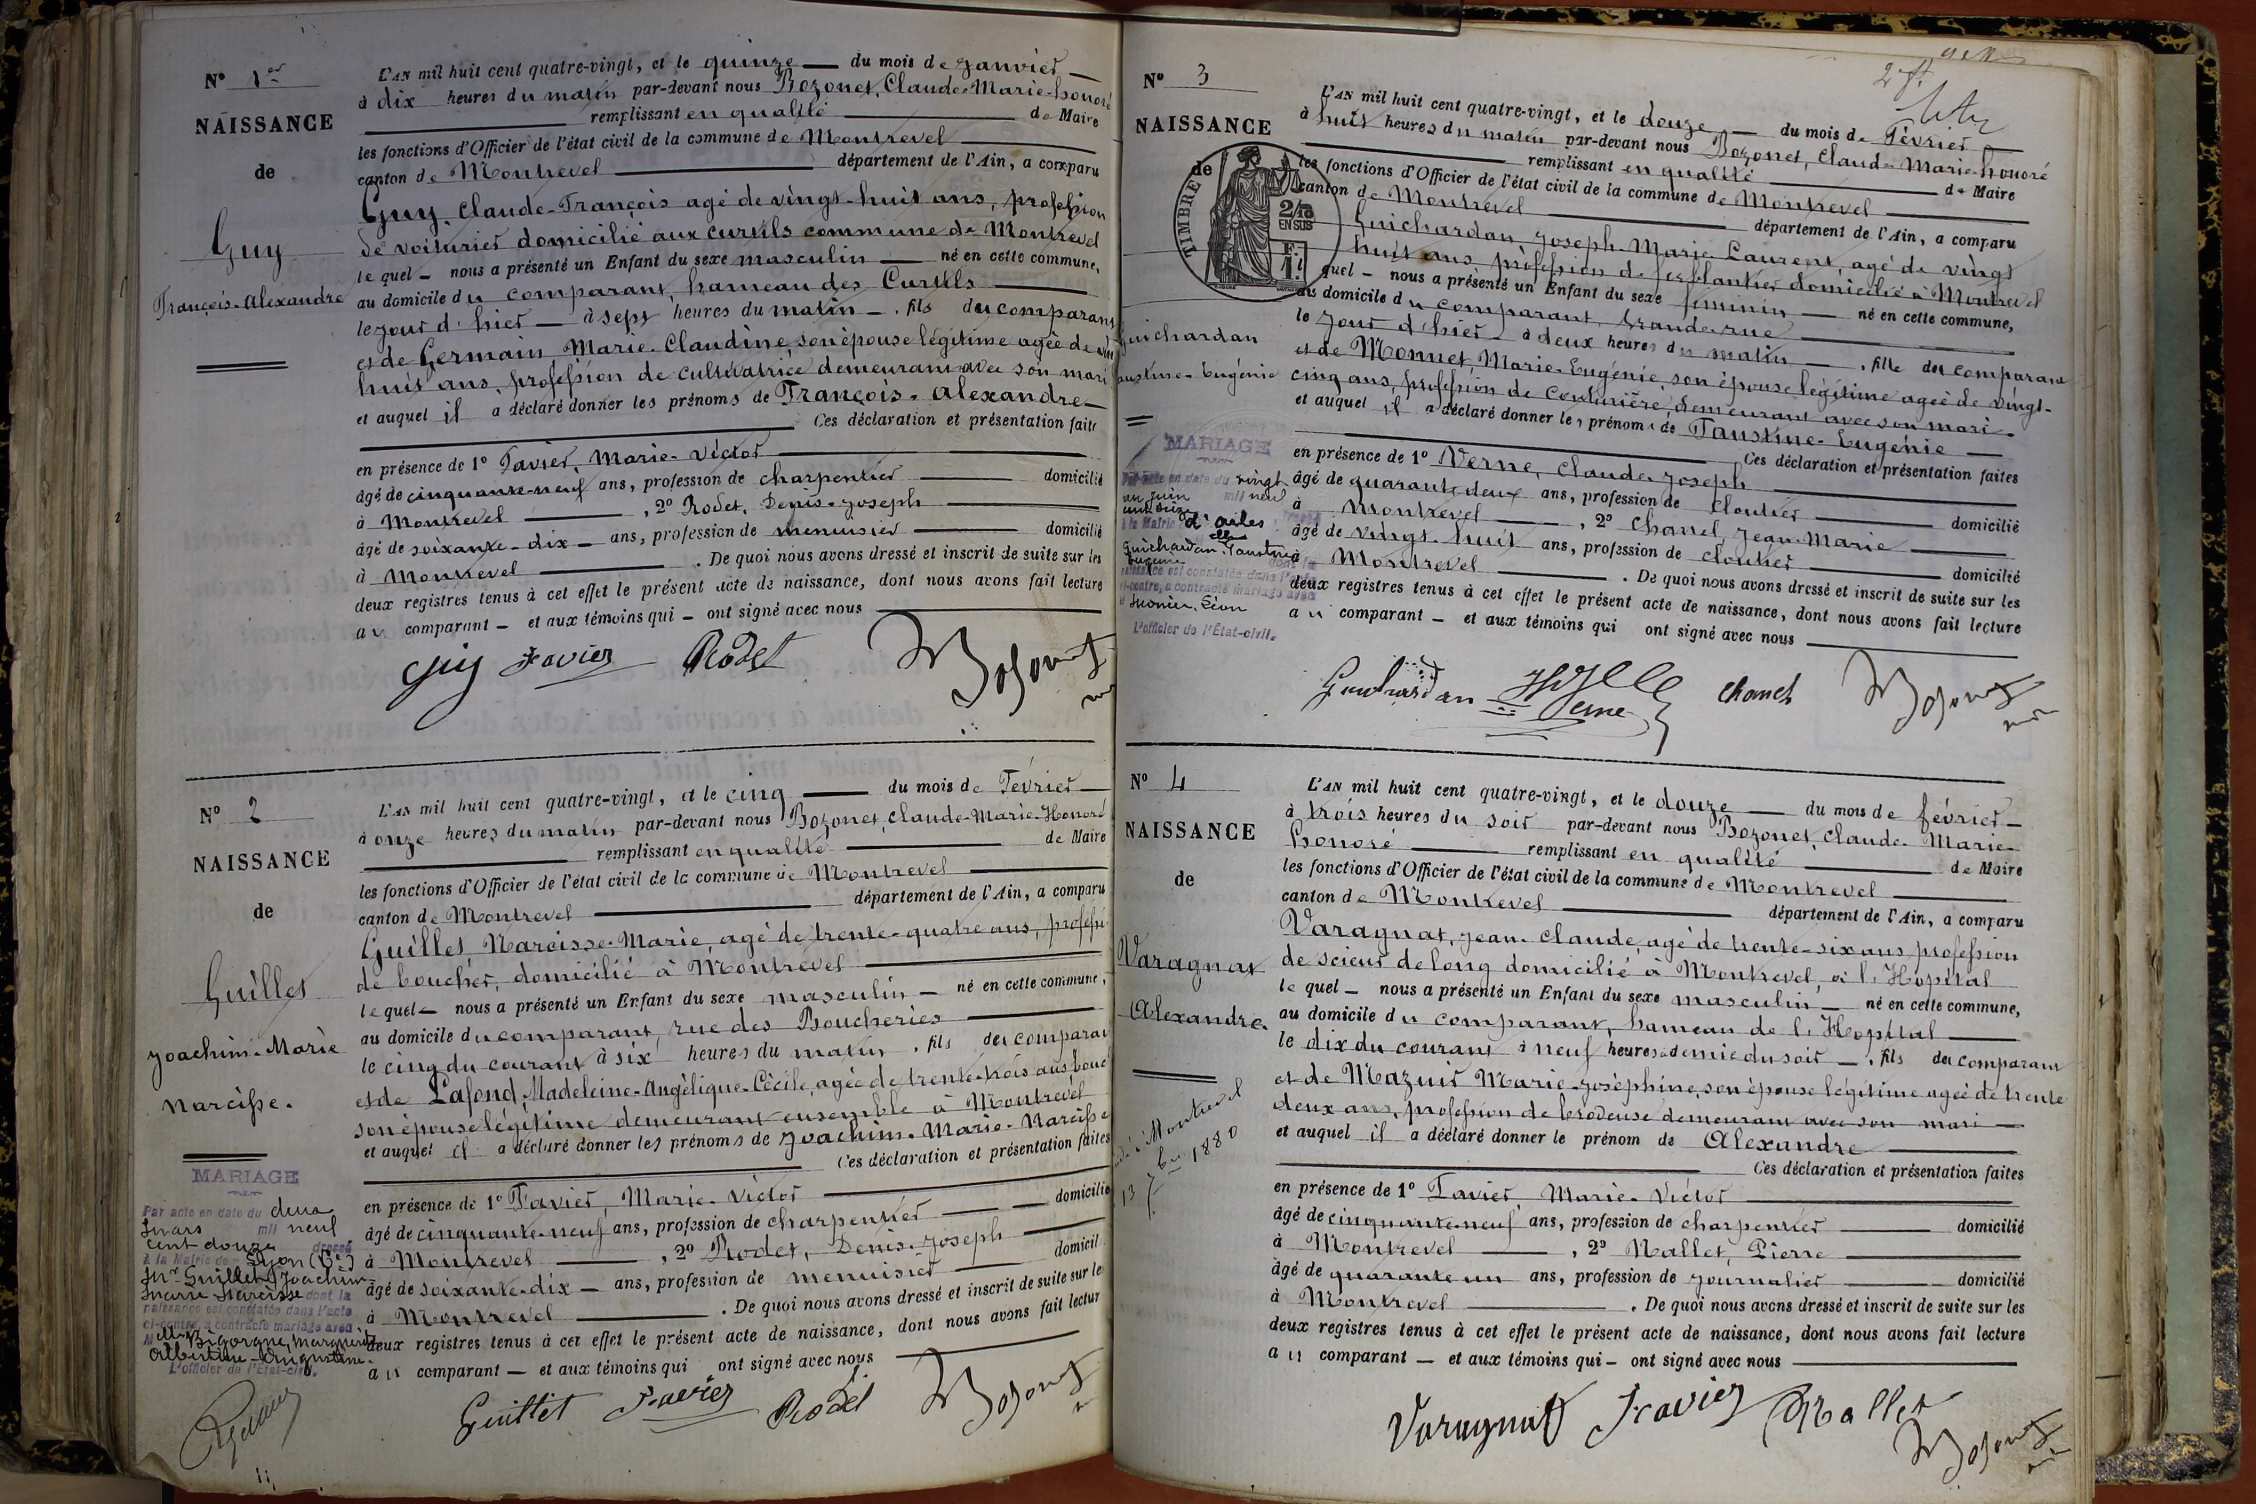 N° 1er
NAISSANCE
de
Guy
François-Alexandre
L'AN mil huit cent quatre-vingt, et le quinze du mois de Janvier
à dix heures du matin par-devant nous Bozonet, Claude-Marie-honoré
remplissant en qualité de Maire
les fonctions d'Officier de l'état civil de la commune de Montrevel
canton de Montrevel département de l'Ain, a comparu
Guy, Claude-François agé de vingt-huit ans, profession
de voiturier domicilié aux curtils commune de Montrevel
le quel nous a présenté un Enfant du sexe masculin né en cette commune,
au domicile du comparant, hameau des Curtils
le jour d'hier à sept heures du matin, fils du comparant
et de Germain Marie-Claudine, son épouse légitime agée de
huit ans, profession de cultivatrice demeurant avec son mari
et auquel il a déclaré donner les prénoms de François-Alexandre
Ces déclaration et présentation faites
en présence de 1° Favier, Marie-Victor
âgé de cinquante-neuf ans, profession de charpentier domicilié
à Montrevel, 2° Rodet, Denis-Joseph
âgé de soixante-dix ans, profession de menuisier domicilié
à Montrevel. De quoi nous avons dressé et inscrit de suite sur les
deux registres tenus à cet effet le présent acte de naissance, dont nous avons fait lecture
au comparant et aux témoins qui ont signé avec nous
Guy Favier Rodet Bozonet
N° 2
NAISSANCE
de
Guillet
Joachim-Marie
Narcisse.
MARIAGE
Par acte en date du deux
mars mil neuf
cent douze dressé
à la Mairie de Lyon (6e)
Mr Guillet Joachim
Marie Narcisse dont la
naissance est constatée dans l'acte
ci-contre, a contracté mariage avec
Mlle Bigorgne, Marguerite
Albertine-Augustine.
L'officier de l'État-civil.
L'AN mil huit cent quatre-vingt, et le cinq du mois de Février
à onze heures du matin par-devant nous Bozonet, Claude-Marie-Honoré
remplissant en qualité de Maire
les fonctions d'Officier de l'état civil de la commune de Montrevel
canton de Montrevel département de l'Ain, a comparu
Guillet, Narcisse-Marie, agé de trente-quatre ans, profession
de boucher, domicilié à Montrevel
le quel nous a présenté un Enfant du sexe masculin né en cette commune,
au domicile du comparant, rue des Boucheries
le cinq du courant à six heures du matin, fils du comparant
et de Lafond, Madeleine-Angélique-Cécile, agée de trente-trois ans
son épouse légitime demeurant ensemble à Montrevel
et auquel il a déclaré donner les prénoms de Joachim-Marie-Narcisse
Ces déclaration et présentation faites
en présence de 1° Favier, Marie-Victor
âgé de cinquante-neuf ans, profession de charpentier domicilié
à Montrevel, 2° Rodet, Denis-Joseph
âgé de soixante-dix ans, profession de menuisier domicilié
à Montrevel. De quoi nous avons dressé et inscrit de suite sur les
deux registres tenus à cet effet le présent acte de naissance, dont nous avons fait lecture
au comparant et aux témoins qui ont signé avec nous
Guillet Favier Rodet Bozonet
N° 3
NAISSANCE
de
TIMBRE
2/10
EN SUS
Guichardan
Faustine-Eugénie
MARIAGE
Par acte en date du vingt
un Juin mil neuf
à la Mairie d'
Guichardan Faustine
Eugénie dont la
naissance est constatée dans l'acte
ci-contre, a contracté mariage avec
Léon
L'officier de l'État-civil.
L'AN mil huit cent quatre-vingt, et le douze du mois de Février
à huit heures du matin par-devant nous Bozonet, Claude-Marie-honoré
remplissant en qualité de Maire
les fonctions d'Officier de l'état civil de la commune de Montrevel
canton de Montrevel département de l'Ain, a comparu
Guichardan, Joseph-Marie-Laurent, agé de vingt
huit ans, profession de ferblantier domicilié à Montrevel
quel nous a présenté un Enfant du sexe féminin né en cette commune,
au domicile du comparant, Grande rue
le jour d'hier à deux heures du matin, fille du comparant
et de Monnet, Marie-Eugénie, son épouse légitime agée de vingt-
cinq ans, profession de couturière, demeurant avec son mari.
et auquel il a déclaré donner les prénoms de Faustine-Eugénie
Ces déclaration et présentation faites
en présence de 1° Verne, Claude-Joseph
âgé de quarante-deux ans, profession de cloutier domicilié
à Montrevel, 2° Chanel, Jean-Marie
âgé de vingt-huit ans, profession de cloutier domicilié
à Montrevel. De quoi nous avons dressé et inscrit de suite sur les
deux registres tenus à cet effet le présent acte de naissance, dont nous avons fait lecture
au comparant et aux témoins qui ont signé avec nous
Guichardan Verne Chanel Bozonet
N° 4
NAISSANCE
de
Varagnat
Alexandre.
à Montrevel
13 7bre 1880
L'AN mil huit cent quatre-vingt, et le douze du mois de février
à trois heures du soir par-devant nous Bozonet, Claude-Marie-
honoré remplissant en qualité de Maire
les fonctions d'Officier de l'état civil de la commune de Montrevel
canton de Montrevel département de l'Ain, a comparu
Varagnat, Jean-Claude, agé de trente-six ans profession
de scieur de long domicilié à Montrevel, à l'Hopital
le quel nous a présenté un Enfant du sexe masculin né en cette commune,
au domicile du comparant, hameau de l'Hopital
le dix du courant à neuf heures & demie du soir, fils du comparant
et de Mazuir Marie-Joséphine, son épouse légitime agée de trente
deux ans, profession de brodeuse demeurant avec son mari
et auquel il a déclaré donner le prénom de Alexandre
Ces déclaration et présentation faites
en présence de 1° Favier, Marie-Victor
âgé de cinquante-neuf ans, profession de charpentier domicilié
à Montrevel, 2° Mallet, Pierre
âgé de quarante un ans, profession de journalier domicilié
à Montrevel. De quoi nous avons dressé et inscrit de suite sur les
deux registres tenus à cet effet le présent acte de naissance, dont nous avons fait lecture
au comparant et aux témoins qui ont signé avec nous
Varagnat Favier Mallet Bozonet